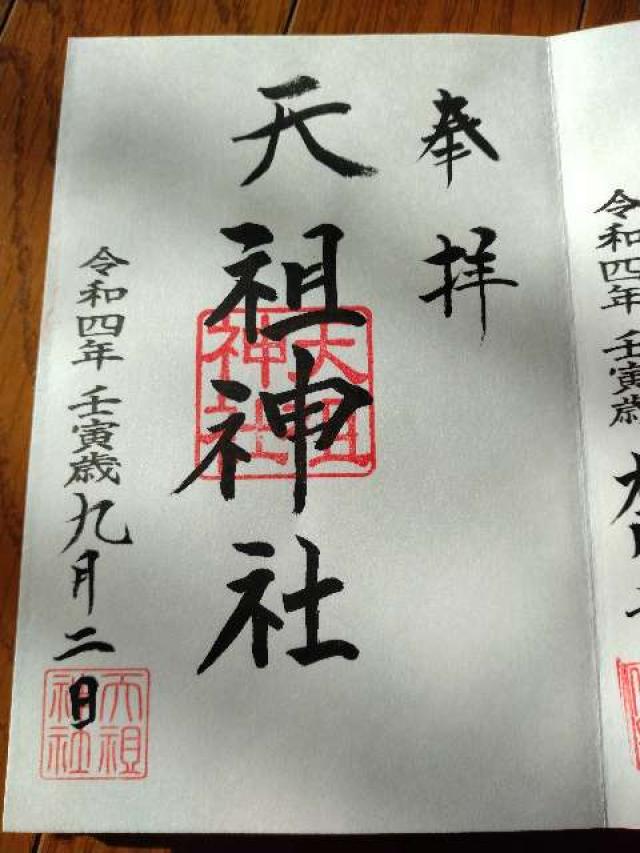 奉拝
天祖神社
天祖神社
令和四年 壬寅歳 九月二日
天祖神社
令和四年 壬寅歳